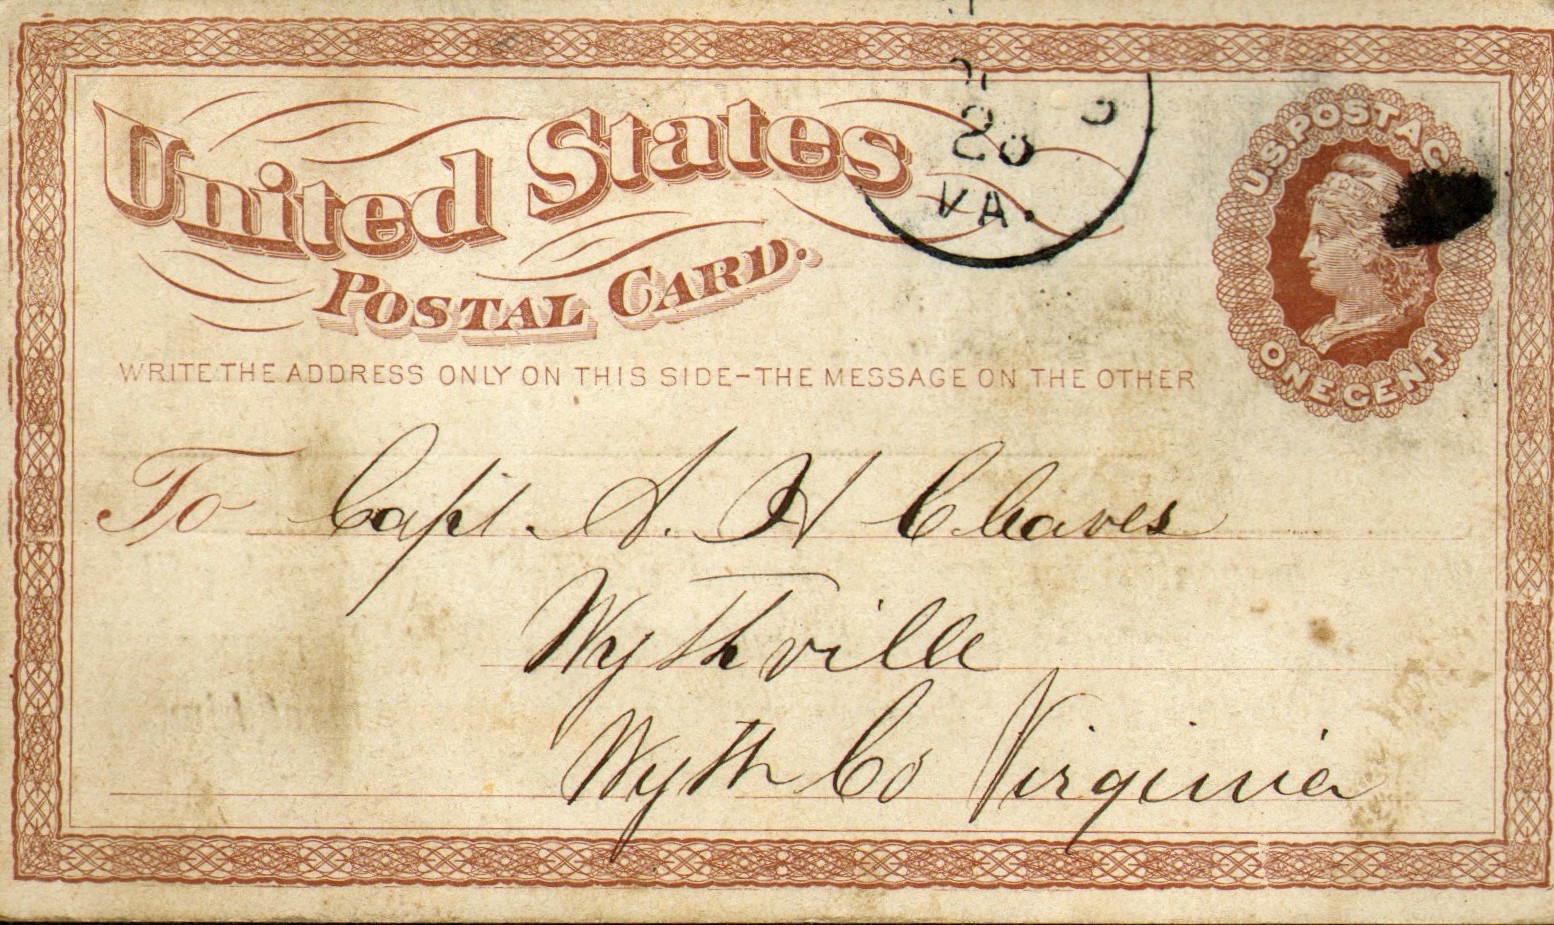 United States
POSTAL CARD.
U.S. POSTAGE
ONE CENT
VA.
WRITE THE ADDRESS ONLY ON THIS SIDE-THE MESSAGE ON THE OTHER
To Capt. S. H Cleaves
Wythville
Wyth Co Virginia